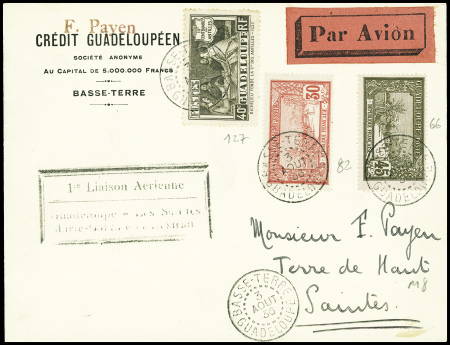 F. Payen
CRÉDIT GUADELOUPÉEN
SOCIÉTÉ ANONYME
AU CAPITAL DE 5.000.000 FRANCS
BASSE-TERRE
Par Avion
40c GUADELOUPE RF
30
45
127
82
66
1re Liaison Aérienne
Guadeloupe - Les Saintes
BASSE-TERRE
3
AOUT
GUADELOUPE
Monsieur F. Payen
Terre de Haut
Saintes
M8